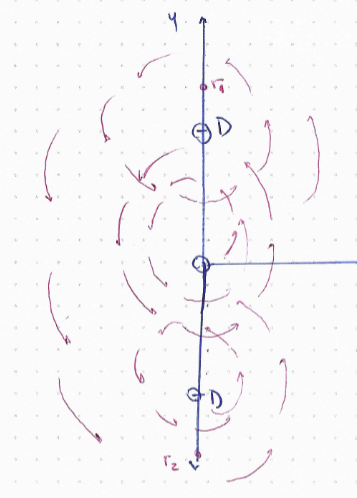 y
r₁
D
D
r₂